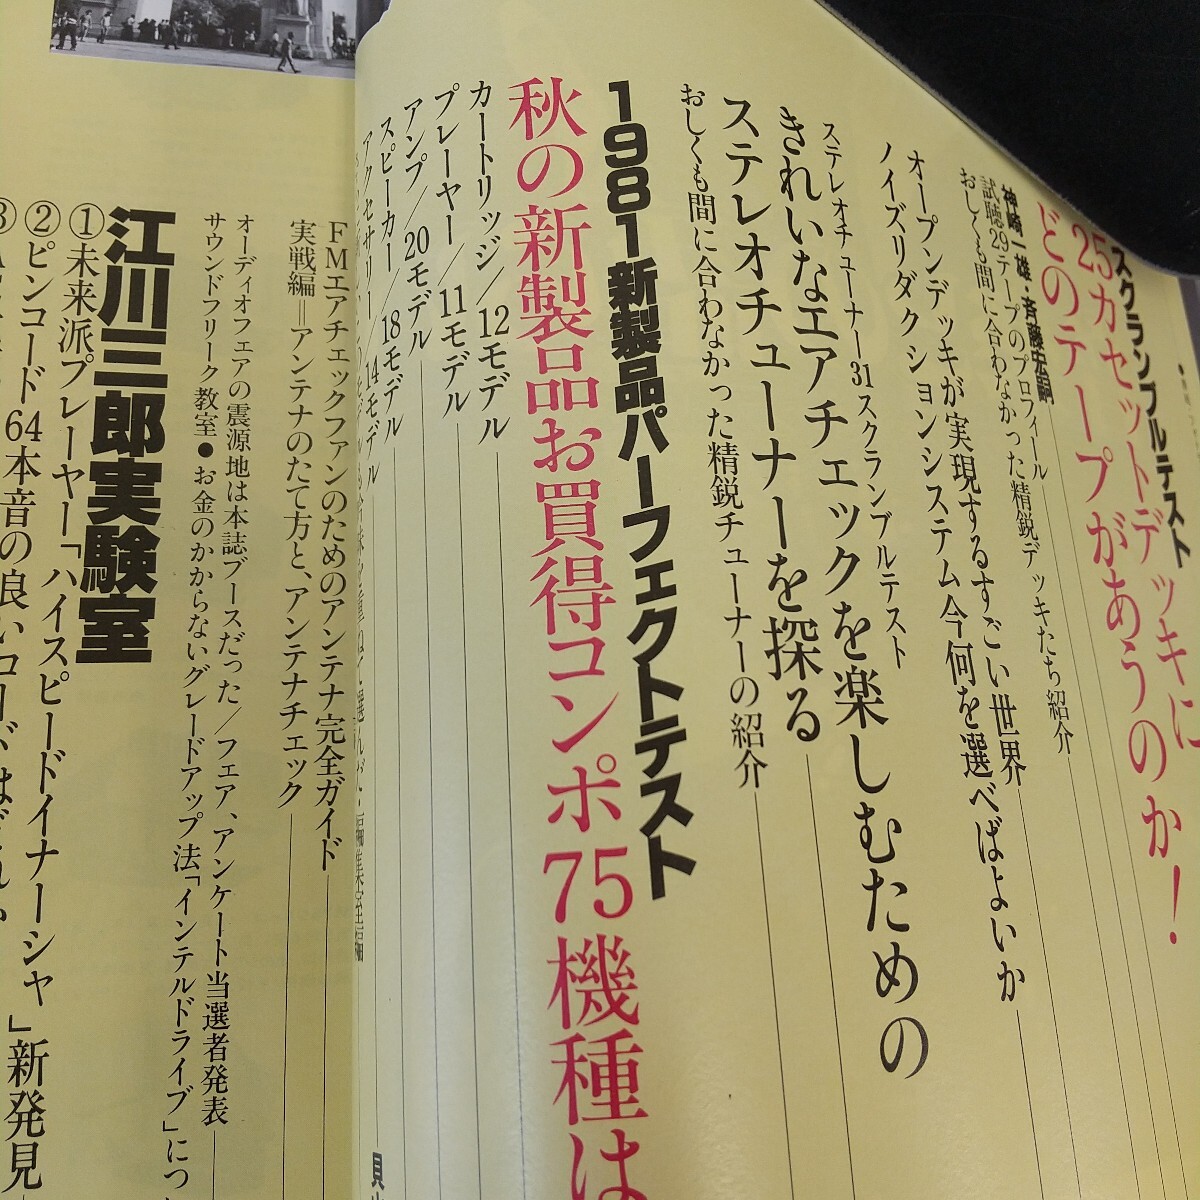 スクランブルテスト
25カセットデッキに
どのテープがあうのか!
神崎一雄・斉藤宏嗣
試聴29テープのプロフィール
おしくも間に合わなかった精鋭デッキたち紹介
オープンデッキが実現するすごい世界
ノイズリダクションシステム今何を選べばよいか
ステレオチューナー31スクランブルテスト
きれいなエアチェックを楽しむための
ステレオチューナーを探る
おしくも間に合わなかった精鋭チューナーの紹介
1981新製品パーフェクトテスト
秋の新製品お買得コンポ75機種は
カートリッジ/12モデル
プレーヤー/11モデル
アンプ/20モデル
スピーカー/18モデル
アクセサリー/14モデル
FMエアチェックファンのためのアンテナ完全ガイド
実戦編=アンテナのたて方と、アンテナチェック
オーディオフェアの震源地は本誌ブースだった/フェア、アンケート当選者発表
サウンドフリーク教室●お金のかからないグレードアップ法「インテルドライブ」につ
江川三郎実験室
①未来派プレーヤー「ハイスピードイナーシャ」新発見
②ピンコード64本音の良いコードはどれか